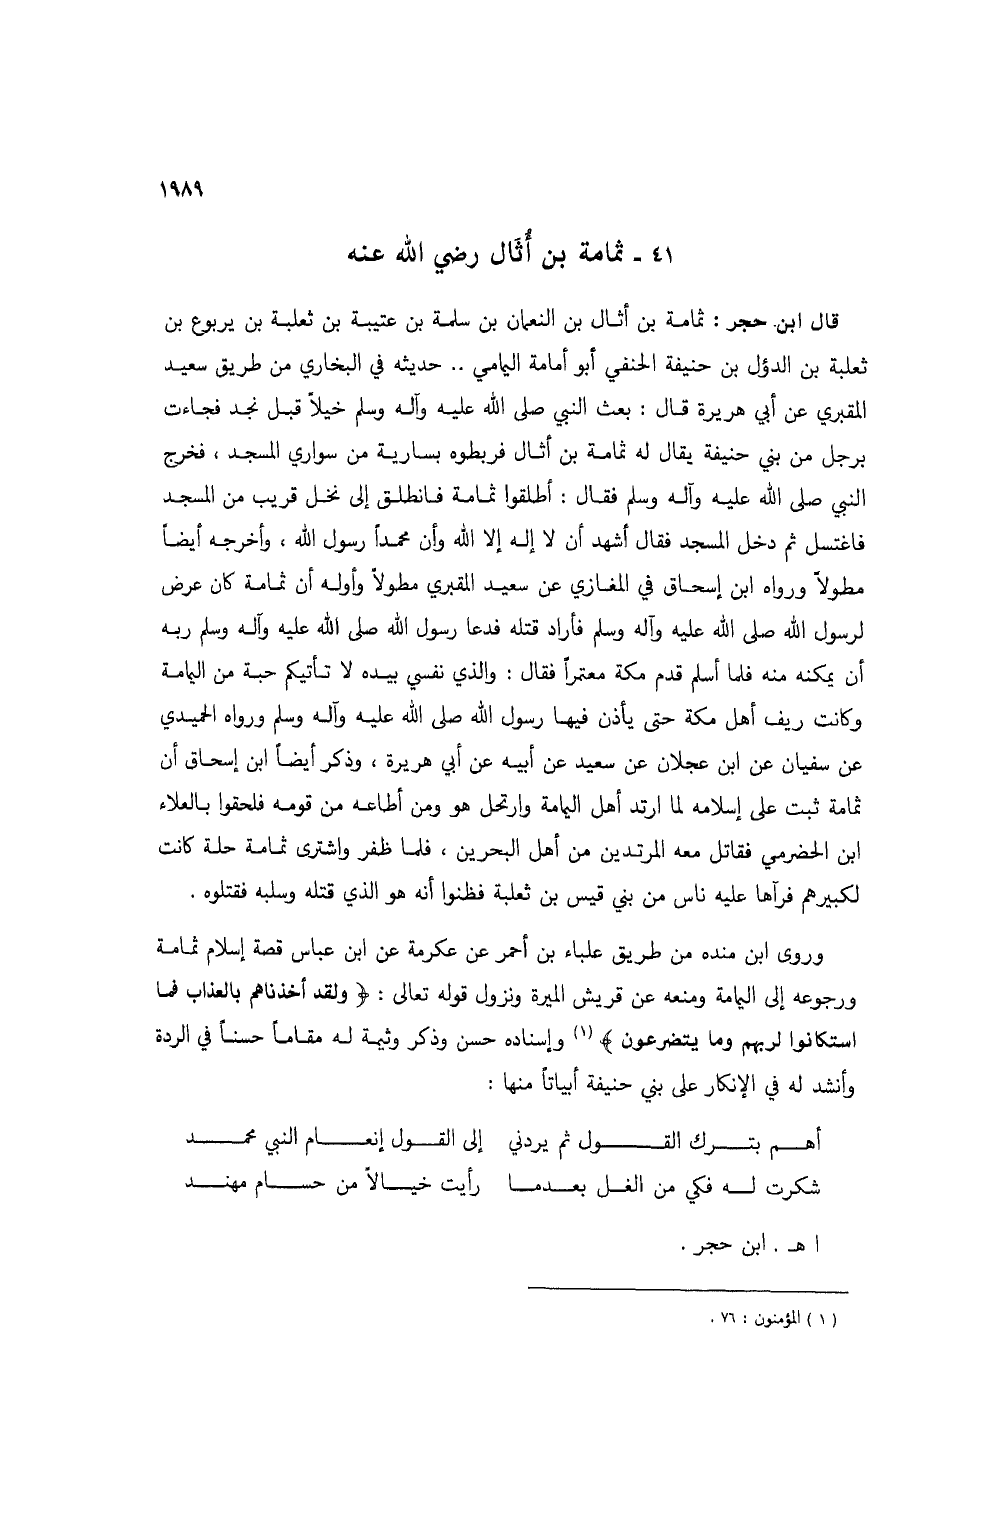 ١٩٨٩
٤١ ـ ثمامة بن أُثَال رضي الله عنه
قال ابن حجر : ثمامة بن أثال بن النعمان بن سلمة بن عتيبة بن ثعلبة بن يربوع بن
ثعلبة بن الدؤل بن حنيفة الحنفي أبو أمامة اليامي .. حديثه في البخاري من طريق سعيد
المقبري عن أبي هريرة قال : بعث النبي صلى الله عليه وآله وسلم خيلاً قبل نجد فجاءت
برجل من بني حنيفة يقال له ثمامة بن أثال فربطوه بسارية من سواري المسجد ، فخرج
النبي صلى الله عليه وآله وسلم فقال : أطلقوا ثمامة فانطلق إلى نخل قريب من المسجد
فاغتسل ثم دخل المسجد فقال أشهد أن لا إله إلا الله وأن محمداً رسول الله ، وأخرجه أيضاً
مطولاً ورواه ابن إسحاق في المغازي عن سعيد المقبري مطولاً وأوله أن ثمامة كان عرض
لرسول الله صلى الله عليه وآله وسلم فأراد قتله فدعا رسول الله صلى الله عليه وآله وسلم ربه
أن يمكنه منه فلما أسلم قدم مكة معتمراً فقال : والذي نفسي بيده لا تأتيكم حبة من اليامة
وكانت ريف أهل مكة حتى يأذن فيها رسول الله صلى الله عليه وآله وسلم ورواه الحميدي
عن سفيان عن ابن عجلان عن سعيد عن أبيه عن أبي هريرة ، وذكر أيضاً ابن إسحاق أن
ثمامة ثبت على إسلامه لما ارتد أهل اليامة وارتحل هو ومن أطاعه من قومه فلحقوا بالعلاء
ابن الحضرمي فقاتل معه المرتدين من أهل البحرين ، فلما ظفر واشترى ثمامة حلة كانت
لكبيرهم فرآها عليه ناس من بني قيس بن ثعلبة فظنوا أنه هو الذي قتله وسلبه فقتلوه .
وروى ابن منده من طريق علباء بن أحمر عن عكرمة عن ابن عباس قصة إسلام ثمامة
ورجوعه إلى اليامة ومنعه عن قريش الميرة ونزول قوله تعالى : ﴿ ولقد أخذناهم بالعذاب فما
استكانوا لربهم وما يتضرعون ﴾ (١) وإسناده حسن وذكر وثيمة له مقاماً حسناً في الردة
وأنشد له في الإنكار على بني حنيفة أبياتاً منها :
أهم بترك القول ثم يردني إلى القول إنعام النبي محمد
شكرت له فكي من الغل بعدما رأيت خيالاً من حسام مهند
ا هـ . ابن حجر .
( ١ ) المؤمنون : ٧٦ .